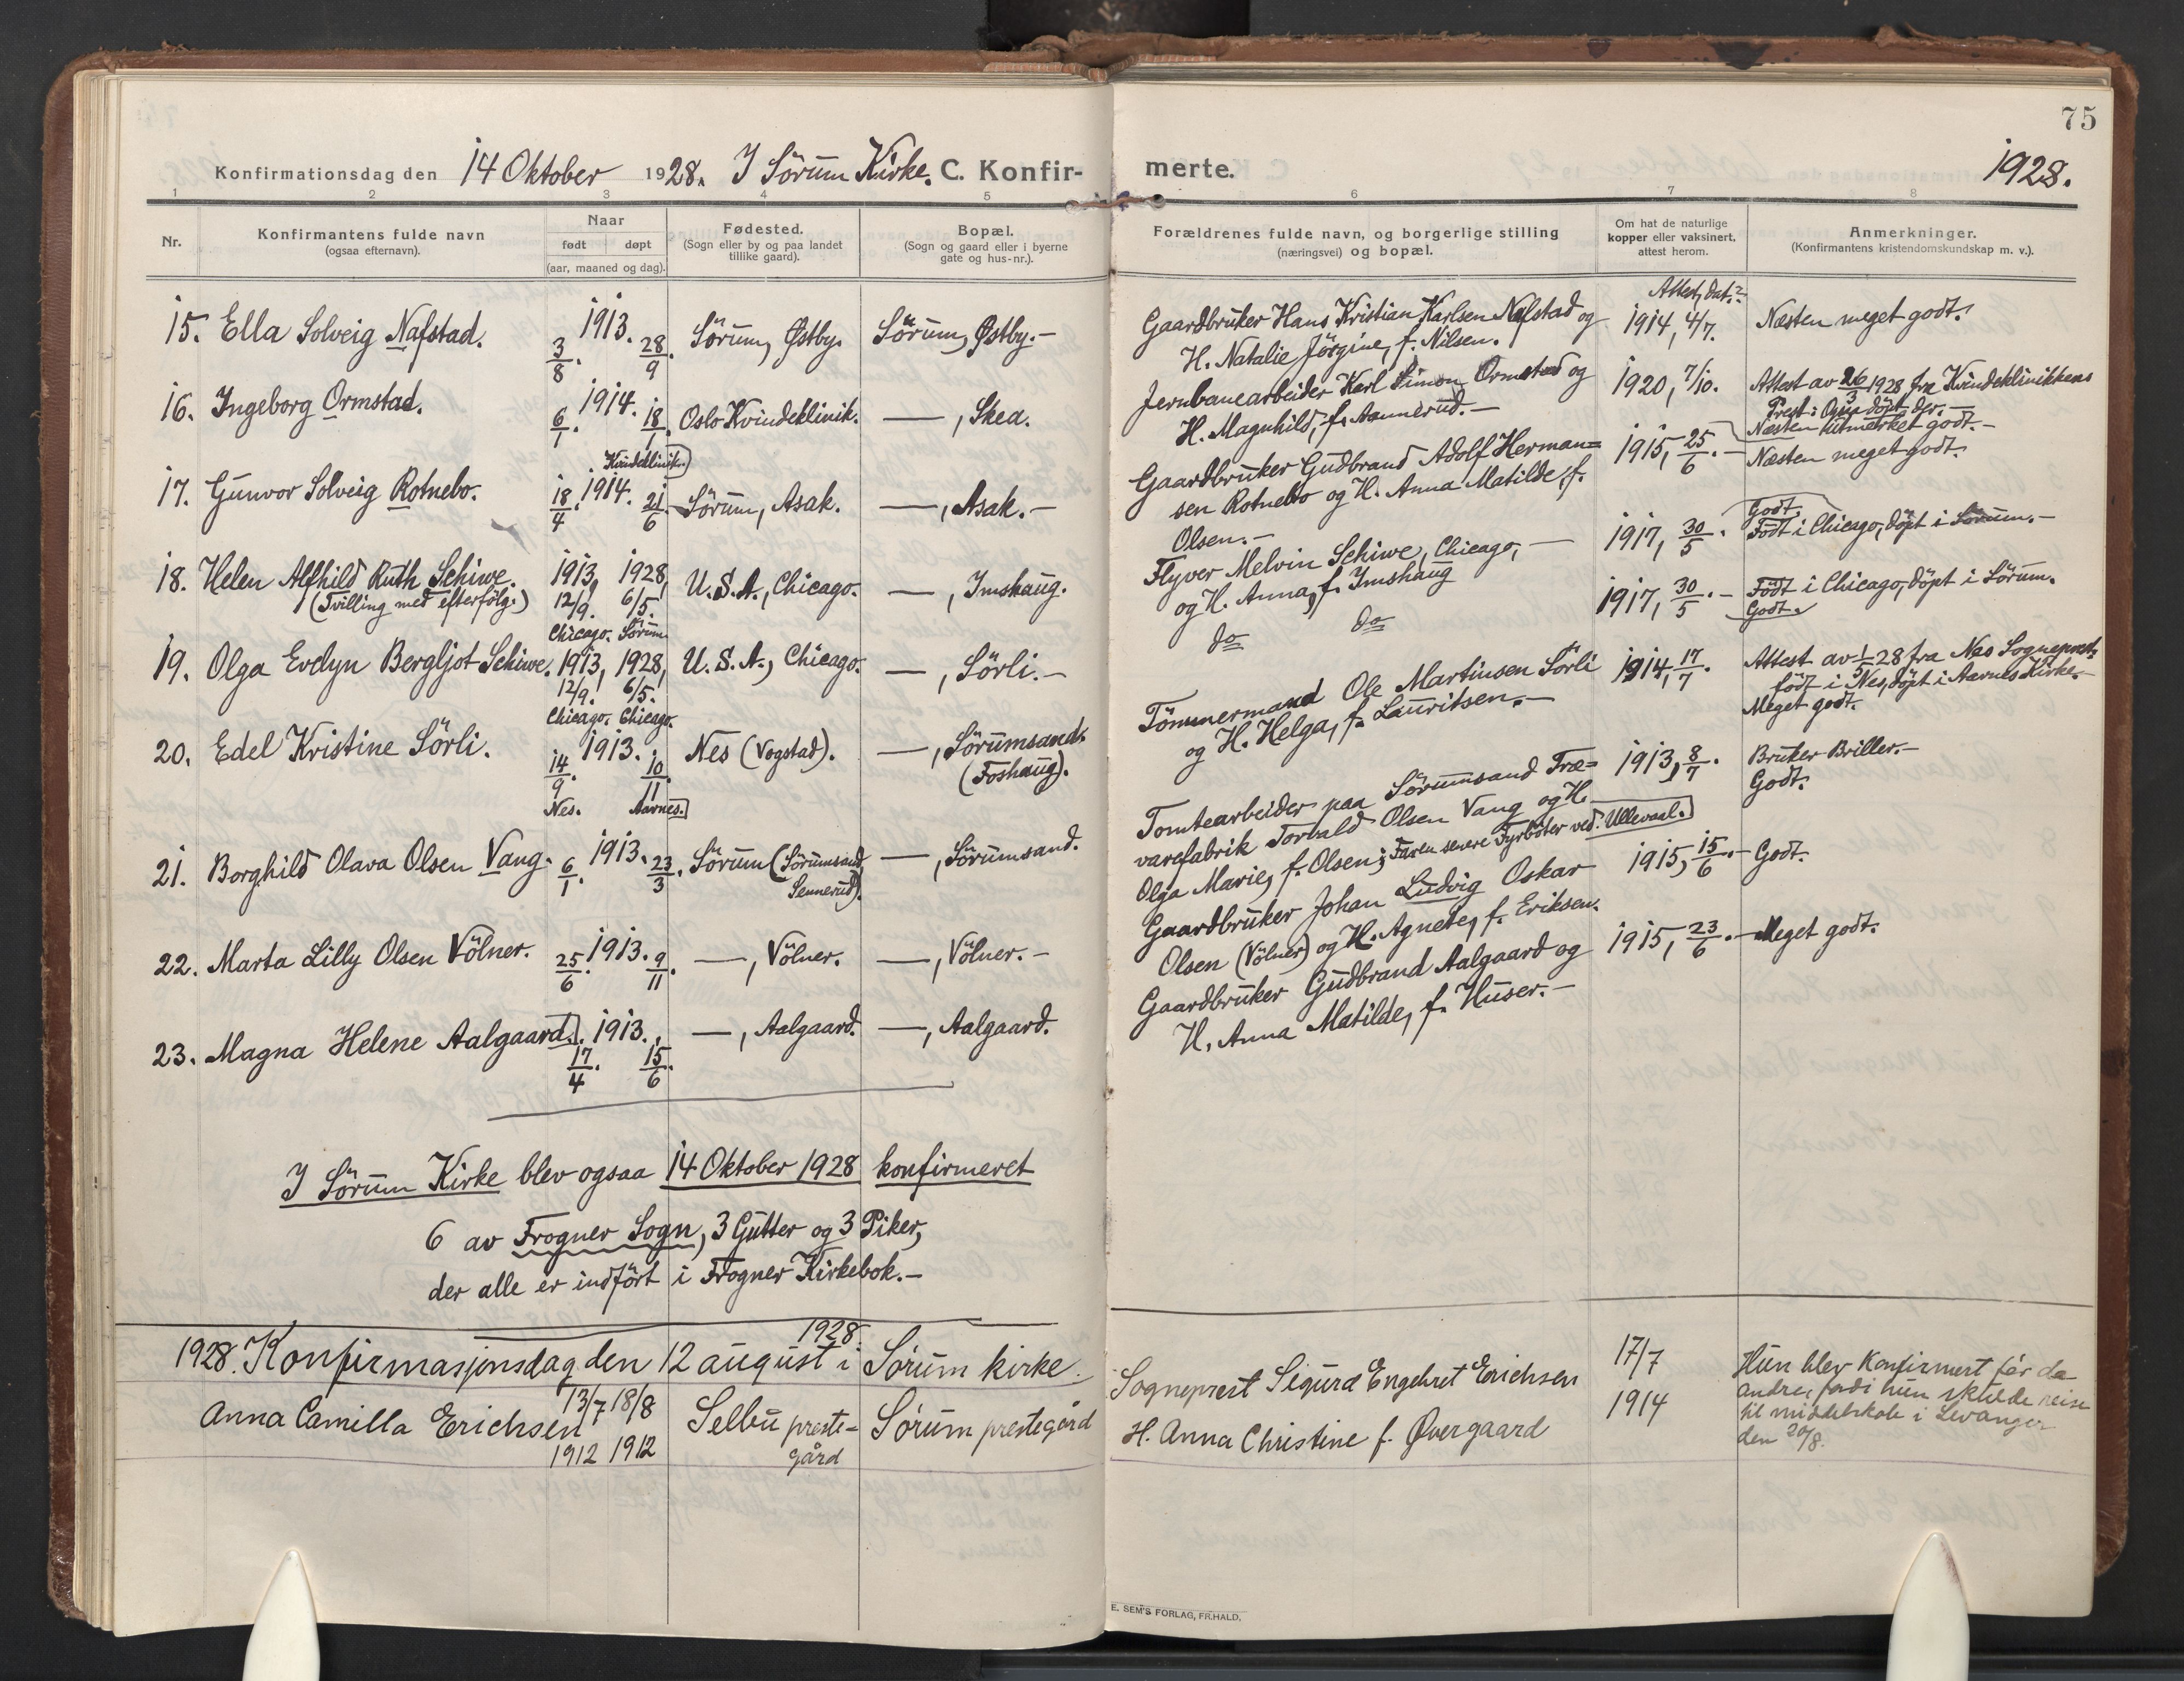 75
Konfirmationsdag den 14 Oktober 1928. I Sörum Kirke. C. Konfirmerte. 1928.
1 2 3 4 5 6 7 8
Nr.
Konfirmantens fulde navn
(ogsaa efternavn).
Naar
født døpt
(aar, maaned og dag).
Fødested.
(Sogn eller by og paa landet
tillike gaard).
Bopæl.
(Sogn og gaard eller i byerne
gate og hus-nr.).
Forældrenes fulde navn, og borgerlige stilling
(næringsvei) og bopæl.
Om hat de naturlige
kopper eller vaksinert,
attest herom.
Anmerkninger.
(Konfirmantens kristendomskundskap m. v.).
Attest, dat.
15. Ella Solveig Nafstad. 1913. 3/8. 28/9. Sörum, Østby. Sörum, Østby.-
Gaardbruker Hans Kristian Karlsen Nafstad og
H. Natalie Jörgine, f. Nilsen.
1914, 4/7.
Næsten meget godt.
16. Ingeborg Ormstad. 1914. 6/1. 18/1. Oslo Kvindeklinik. —, Skea.
Kvindeklinik.
Jernbanearbeider Karl Simon Ormstad og
H. Magnhild, f. Aannerud.-
1920, 7/10.
Attest av 26/3 1928 fra Kvindeklinikkens
Prest: døpt der.-
Næsten utmerket godt.-
17. Gunvor Solveig Rotnebo. 18/4. 1914. 21/6. Sörum, Asak. —, Asak.-
Gaardbruker Gudbrand Adolf Herman=
sen Rotnebo og H. Anna Matilde, f.
Olsen.-
1915, 25/6.-
Næsten meget godt.
18. Helen Alfhild Ruth Schiwe. 1913, 12/9. 1928, 6/5. U.S.A., Chicago. —, Imshaug.
(Tvilling med efterfölg.)
Chicago. Sörum.
Flyver Melvin Schiwe, Chicago,-
og H. Anna, f. Imshaug
1917, 30/5.
Godt.
Födt i Chicago, döpt i Sörum.-
19. Olga Evelyn Bergljot Schiwe. 1913, 12/9. 1928, 6/5. U.S.A., Chicago. —, Sörli.-
Chicago. Chicago.
do do
1917, 30/5.-
Födt i Chicago, döpt i Sörum.
Godt.
20. Edel Kristine Sörli. 14/9. 1913. 10/11. Nes (Vogstad). —, Sörumsand.
(Foshaug).
Nes. Aarnes.
Tömmermand Ole Martinsen Sörli
og H. Helga, f. Lauritsen.-
1914, 17/7.
Attest av 1/5 28 fra Nes Sogneprest:
födt i Nes, döpt i Aarnes Kirke.-
Meget godt.
21. Borghild Olava Olsen Vang. 6/1. 1913. 23/3. Sörum (Sörumsand,
Sennerud). —, Sörumsand.
Tomtearbeider paa Sörumsand Træ=
varefabrik Torvald Olsen Vang og H.
Olga Marie, f. Olsen; Faren senere Fyrböter ved Ullevaal.
1913, 8/7.
Bruker Briller.-
Godt.
22. Marta Lilly Olsen Völner. 25/6. 1913. 9/11. —, Völner. —, Völner.-
Gaardbruker Johan Ludvig Oskar
Olsen (Völner) og H. Agnete, f. Eriksen.
1915, 15/6.-
Godt.
23. Magna Helene Aalgaard. 1913. 17/4. 15/6. —, Aalgaard. —, Aalgaard.
Gaardbruker Gudbrand Aalgaard og
H. Anna Matilde, f. Huser.-
1915, 23/6.-
Meget godt.
I Sörum Kirke blev ogsaa 14 Oktober 1928 konfirmeret
6 av Frogner Sogn, 3 Gutter og 3 Piker,
der alle er indfört i Frogner Kirkebok.-
1928
1928. Konfirmasjonsdag den 12 august i Sørum kirke.
Anna Camilla Erichsen 13/7 1912 18/8 1912 Selbu preste-
gård Sørum prestegård
Sogneprest Sigurd Engebret Erichsen
H. Anna Christine f. Øvergaard
17/7
1914
Hun blev konfirmert før de
andre, fordi hun skulde reise
til middelskole i Levanger
den 20/8.
E. SEM'S FORLAG, FR.HALD.